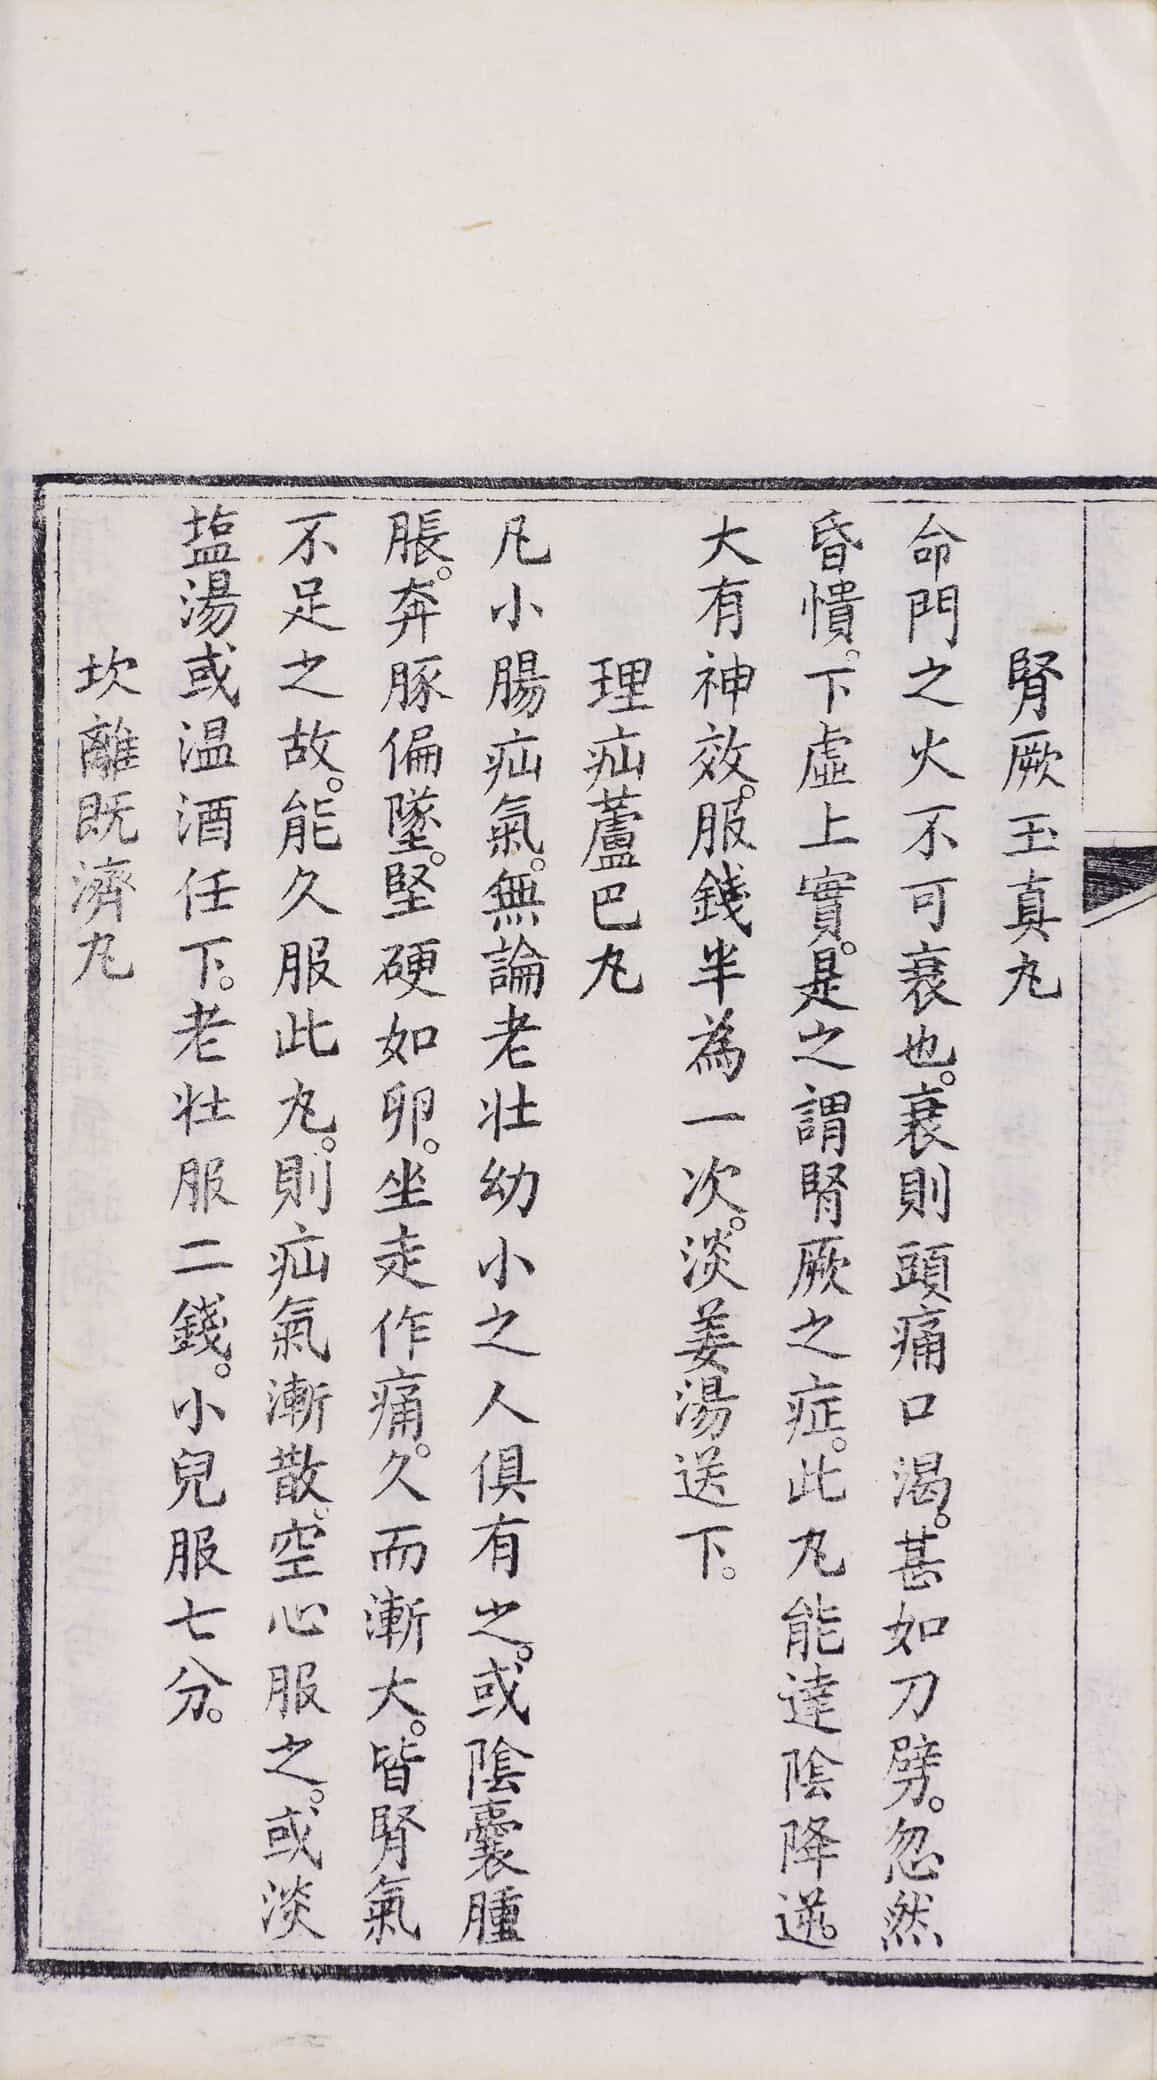 腎厥玉真丸
命門之火不可衰也。衰則頭痛口渴。甚如刀劈。忽然
昏憒。下虛上實。是之謂腎厥之症。此丸能達陰降逆。
大有神效。服錢半為一次。淡姜湯送下。
理疝蘆巴丸
凡小腸疝氣。無論老壮幼小之人俱有之。或陰囊腫
脹。奔豚偏墜。堅硬如卵。坐走作痛。久而漸大。皆腎氣
不足之故。能久服此丸。則疝氣漸散。空心服之。或淡
塩湯或温酒任下。老壮服二錢。小兒服七分。
坎離既濟丸